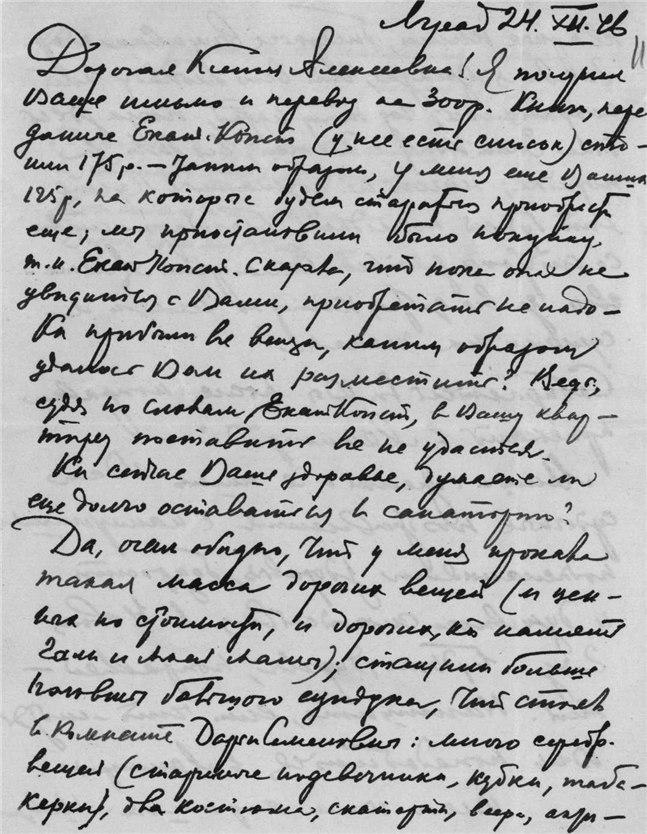 Лград 24.XII.46
11
Дорогая Ксения Алексеевна! Я получил
Ваше письмо и перевод на 300р. Книги, пере-
данные Екат.Конст (у нее есть список) стои-
ли 175р. – Таким образом, у меня еще Ваших
125р, на которые будем стараться приобрести
еще; мы приостановили было покупку,
т.к. Екат Конст. сказала, что пока она не
увидится с Вами, приобретать не надо –
Как прибыли все вещи, каким образом
удалось Вам их разместить? Ведь,
судя по словам ЕкатКонст, в Вашу квар-
тиру поставить все не удастся.
Как сейчас Ваше здоровье, думаете ли
еще долго оставаться в санатории?
Да, очень обидно, что у меня пропала
такая масса дорогих вещей (и цен-
ных по стоимости, и дорогих, как память
Гали и моей мамы); стащили больше
половины большого сундука, что стоял
в комнате Дарьи Семеновны: много серебр.
вещей (старинные подсвечники, кубки, таба-
керки), два костюма, скатерти, веера,